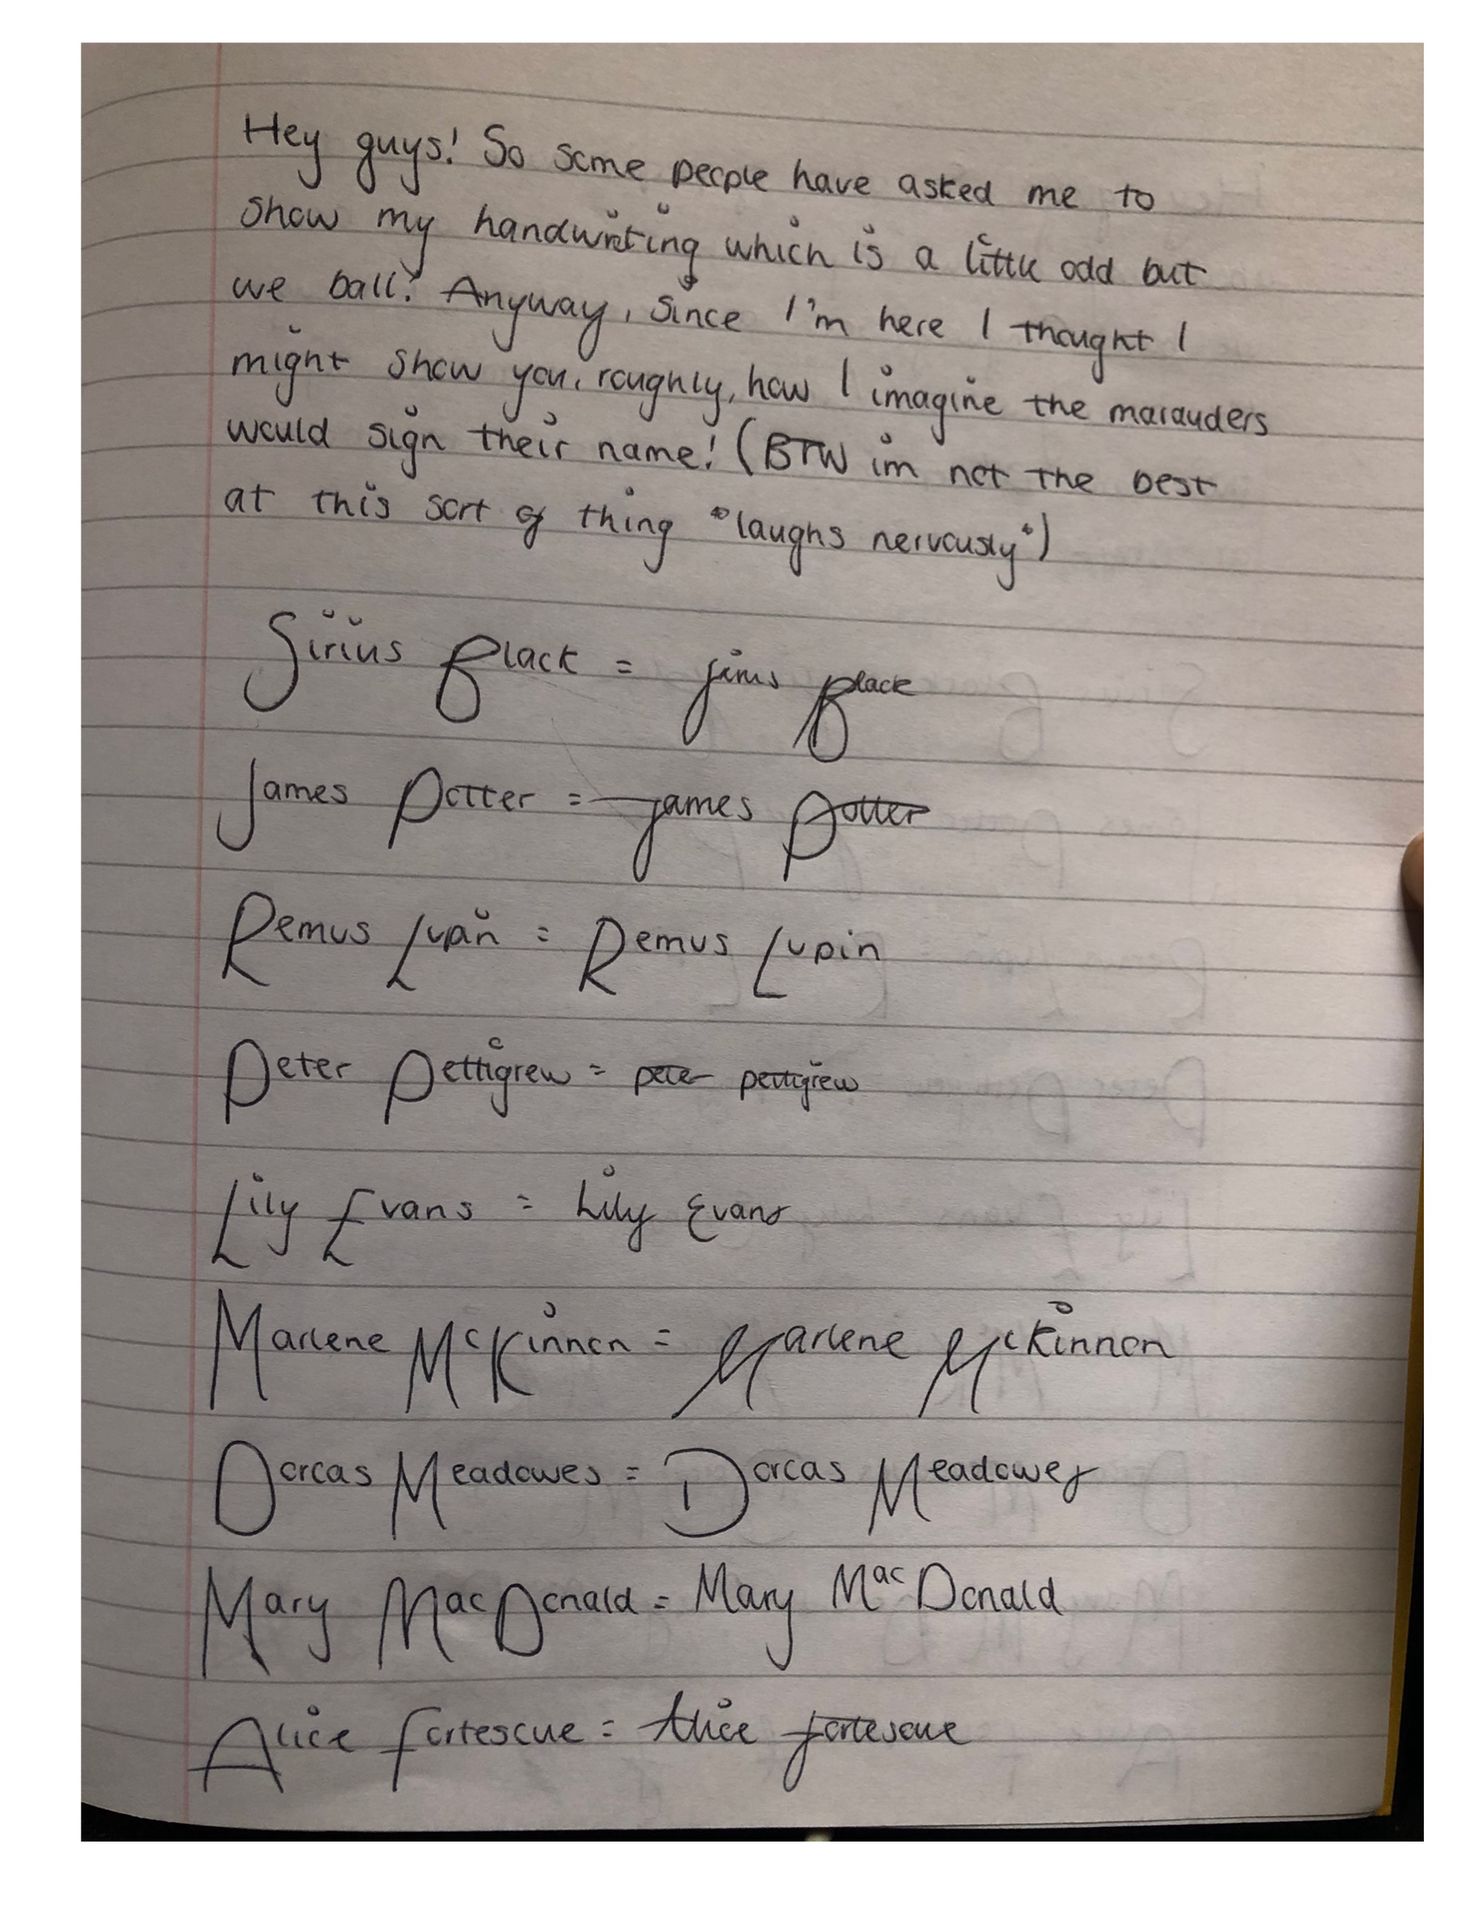 Hey guys! So some people have asked me to
show my handwriting which is a little odd but
we ball! Anyway, since I'm here I thought I
might show you, roughly, how I imagine the marauders
would sign their name! (BTW im not the best
at this sort of thing *laughs nervously*)
Sirius Black = Sirius Black
James Potter = James Potter
Remus Lupin = Remus Lupin
Peter Pettigrew = peter pettigrew
Lily Evans = Lily Evans
Marlene McKinnon = Marlene McKinnon
Dorcas Meadowes = Dorcas Meadowes
Mary MacDonald = Mary MacDonald
Alice fortescue = Alice fortescue